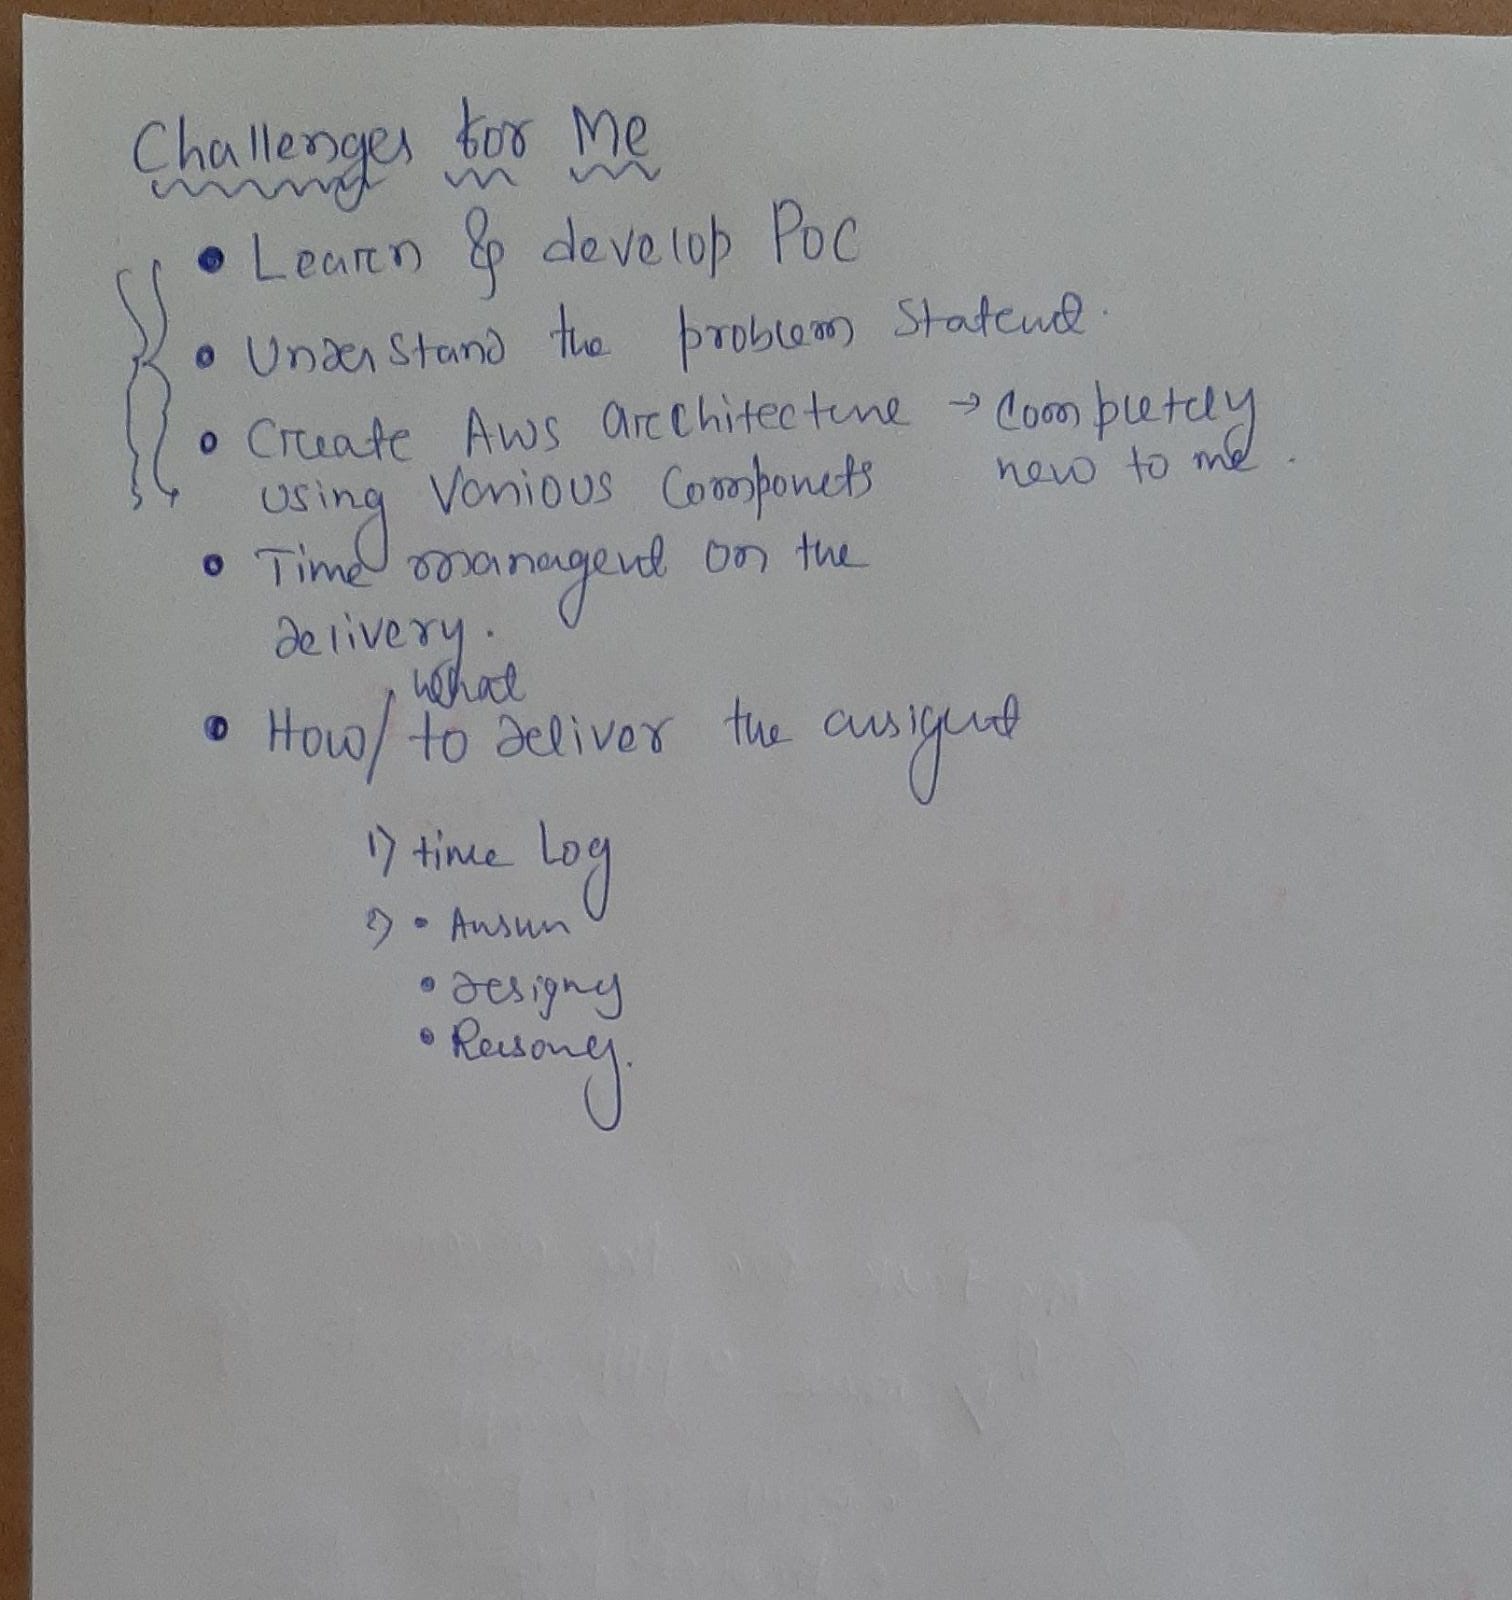 Challenges for Me
• Learn & develop POC
• Understand the problem Statemet.
• Create AWS architecture → Completely
using Various Componets new to me.
• Time managent on the
delivery.
what
• How/ to deliver the assignent
1) time log
2) • Answer
• Designg
• Reasong.